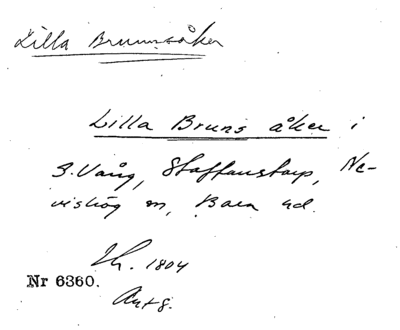 Lilla Brunnsåker
Lilla Bruns åker i
3. Vång, Staffanstorp, Ne-
vishög sn, Bara hd.
Lh. 1804
Nr 6360.
Akt 8.